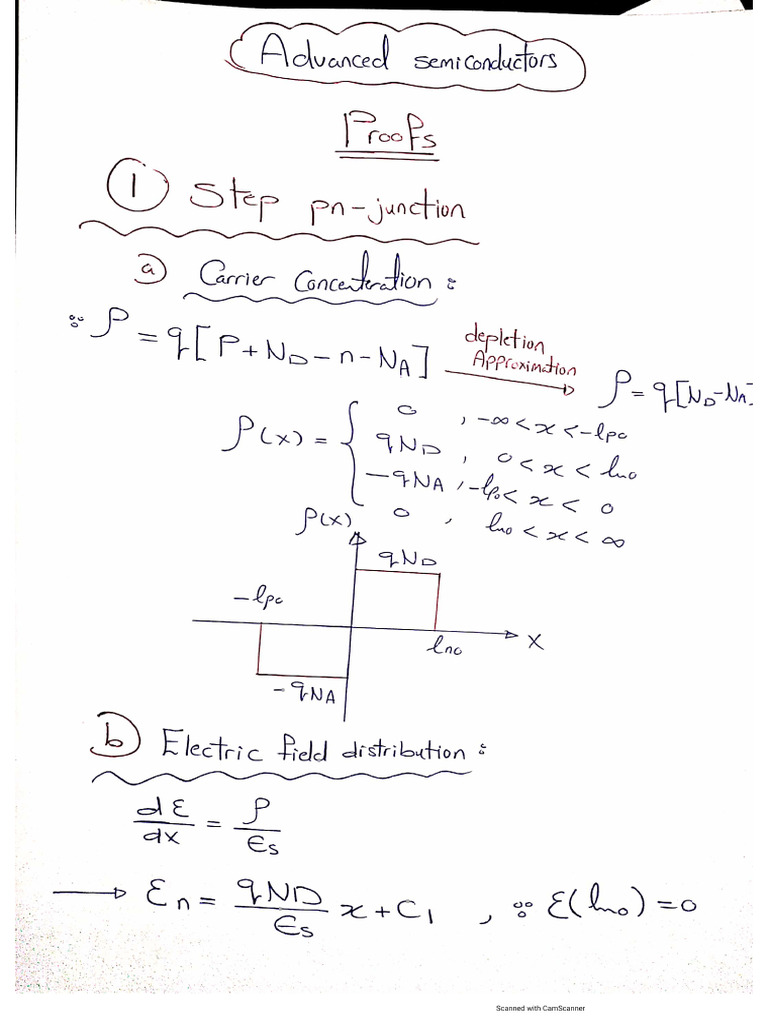 Advanced semiconductors
Proofs
① Step pn-junction
ⓐ Carrier Concenteration :
∵ ρ = q[P+N_D-n-N_A] depletion Approximation → ρ = q[N_D-N_A]
ρ(x) = { 0 , -∞<x<-lpo
qN_D , 0<x<lno
-qN_A , -lpo<x<0
0 , lno<x<∞
ρ(x)
qN_D
-lpo
lno
X
-qN_A
ⓑ Electric field distribution :
dℰ/dx = ρ/ϵs
→ ℰn = qND/ϵs x + C1 , ∵ ℰ(lno) = 0
Scanned with CamScanner